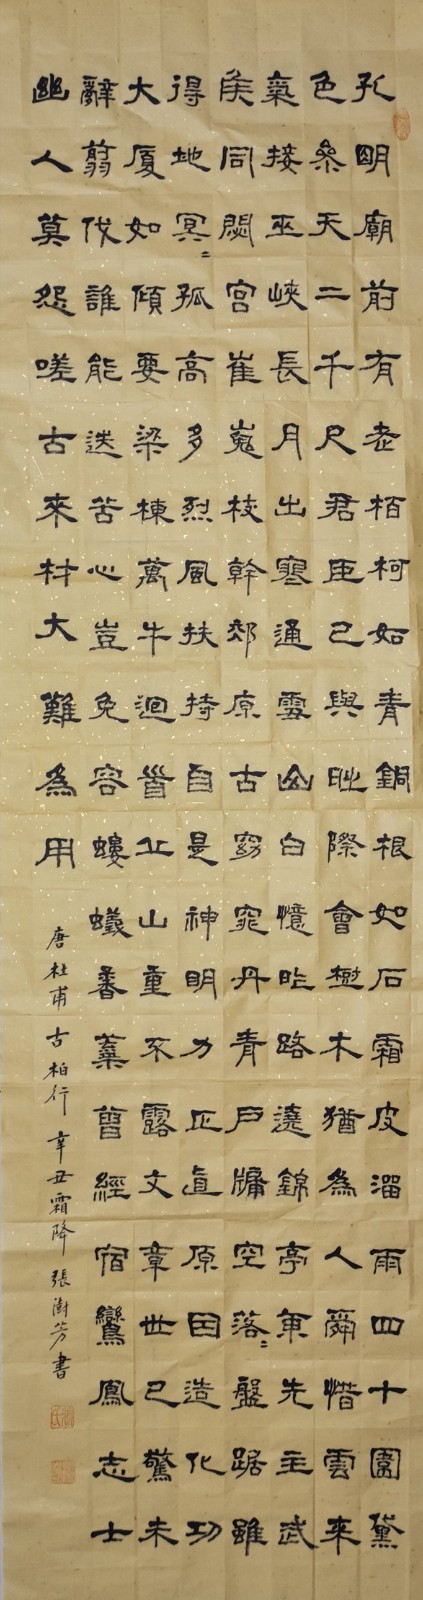 孔明廟前有老栢柯如青銅根如石霜皮溜雨四十圍黛
色參天二千尺君臣已與時際會樹木猶為人愛惜雲來
氣接巫峽長月出寒通雪山白憶昨路遶錦亭東先主武
侯同閟宮崔嵬枝幹郊原古窈窕丹青戶牖空落〻盤踞雖
得地冥〻孤高多烈風扶持自是神明力正直原因造化功
大廈如傾要梁棟萬牛迴首丘山重不露文章世已驚未
辭翦伐誰能送苦心豈免容螻蟻香葉曾經宿鸞鳳志士
幽人莫怨嗟古來材大難為用
唐杜甫古柏行 辛丑霜降 張澍芳書